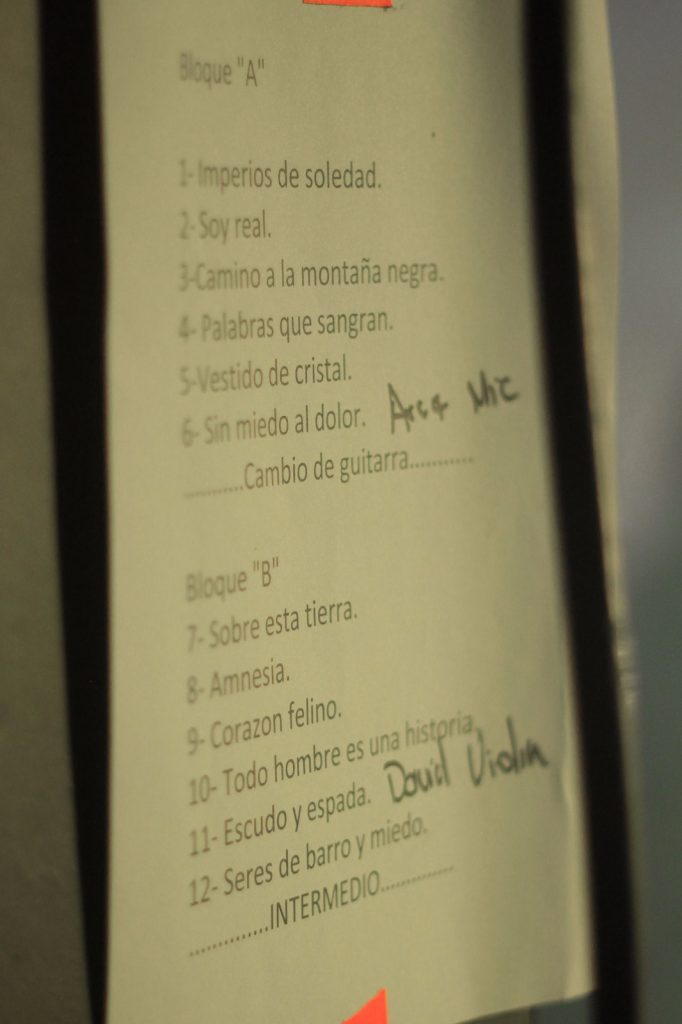 Bloque "A"
1- Imperios de soledad.
2- Soy real.
3-Camino a la montaña negra.
4- Palabras que sangran.
5-Vestido de cristal.
6- Sin miedo al dolor. Mic
...........Cambio de guitarra............
Bloque "B"
7- Sobre esta tierra.
8- Amnesia.
9- Corazon felino.
10- Todo hombre es una historia.
11- Escudo y espada. David Violin
12- Seres de barro y miedo.
..............INTERMEDIO..............